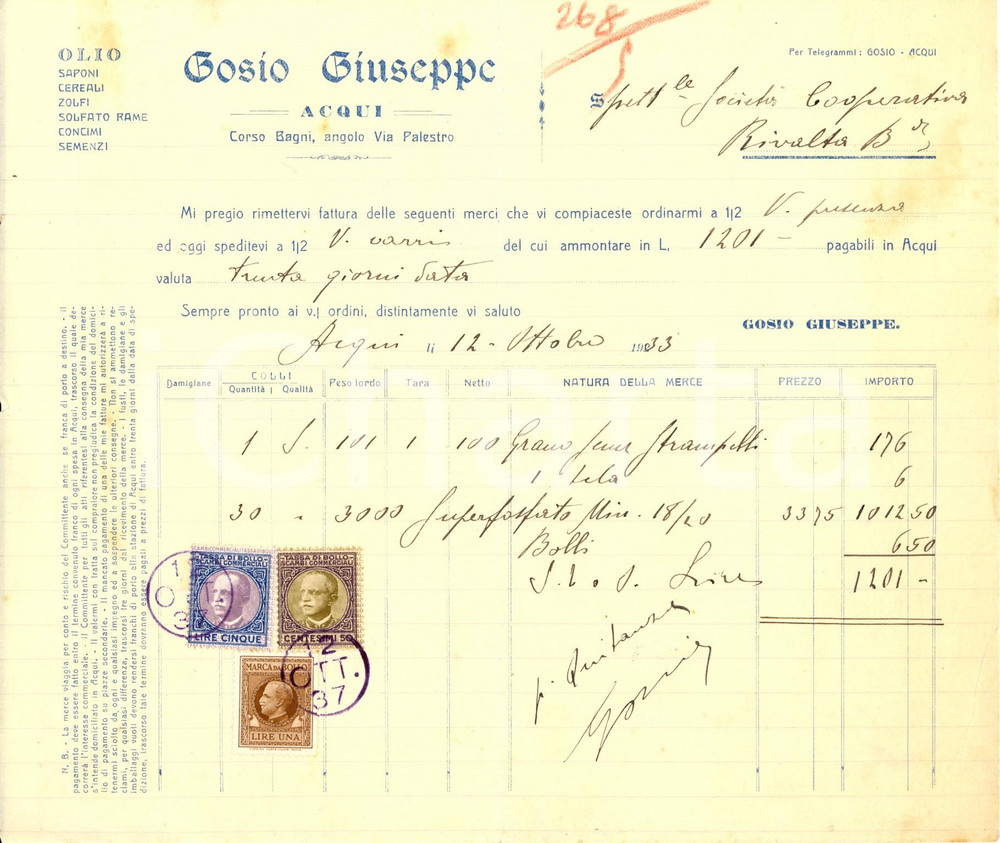 268
OLIO
SAPONI
CEREALI
ZOLFI
SOLFATO RAME
CONCIMI
SEMENZI
Gosio Giuseppe
ACQUI
Corso Bagni, angolo Via Palestro
Per Telegrammi : GOSIO - ACQUI
Spett.le Società Cooperativa
Rivalta B.da
Mi pregio rimettervi fattura delle seguenti merci che vi compiaceste ordinarmi a 1|2 V. presenza
ed oggi speditevi a 1|2 V. carris del cui ammontare in L, 1201 - pagabili in Acqui
valuta trenta giorni data
Sempre pronto ai v.| ordini, distintamente vi saluto
GOSIO GIUSEPPE.
Acqui li 12 - Ottobre 1933
Damigiane COLLI Quantità Qualità Peso lordo Tara Netto NATURA DELLA MERCE PREZZO IMPORTO
1 S. 101 1 100 Grano Strampelli 176
1 tela 6
30 " 3000 Superfosfato Min. 18/20 33 75 1012 50
Bolli 6 50
S. E. o O. Lire 1201 -
p. Quitanza
Gosio
TASSA DI BOLLO
SCAMBI COMMERCIALI
LIRE CINQUE
TASSA DI BOLLO
SCAMBI COMMERCIALI
CENTESIMI 50
MARCA DA BOLLO
LIRE UNA
12
OTT.
37
N. B. - La merce viaggia per conto e rischio del Committente anche se franca di porto a destino. - Il
pagamento deve essere fatto entro il termine convenuto franco di ogni spesa in Acqui, trascorso il quale de-
correrà l'interesse commerciale. - Il Committente per tutti gli atti riferentesi alla consegna della mia merce
s'intende domiciliato in Acqui. - Il valermi con tratta sul compratore non pregiudica la condizione del domici-
lio di pagamento su piazze secondarie. - Il mancato pagamento di una delle mie fatture mi autorizzerà a ri-
tenermi sciolto da ogni e qualsiasi impegno ed a sospendere le ulteriori consegne. - Non si ammettono re-
clami, per qualsiasi differenza, trascorsi tre giorni dal ricevimento della merce. - I fusti, le damigiane e gli
imballaggi vuoti devono rendersi franchi di porto alla stazione di Acqui entro trenta giorni dalla data di spe-
dizione, trascorso tale termine dovranno essere pagati a prezzi di fattura.